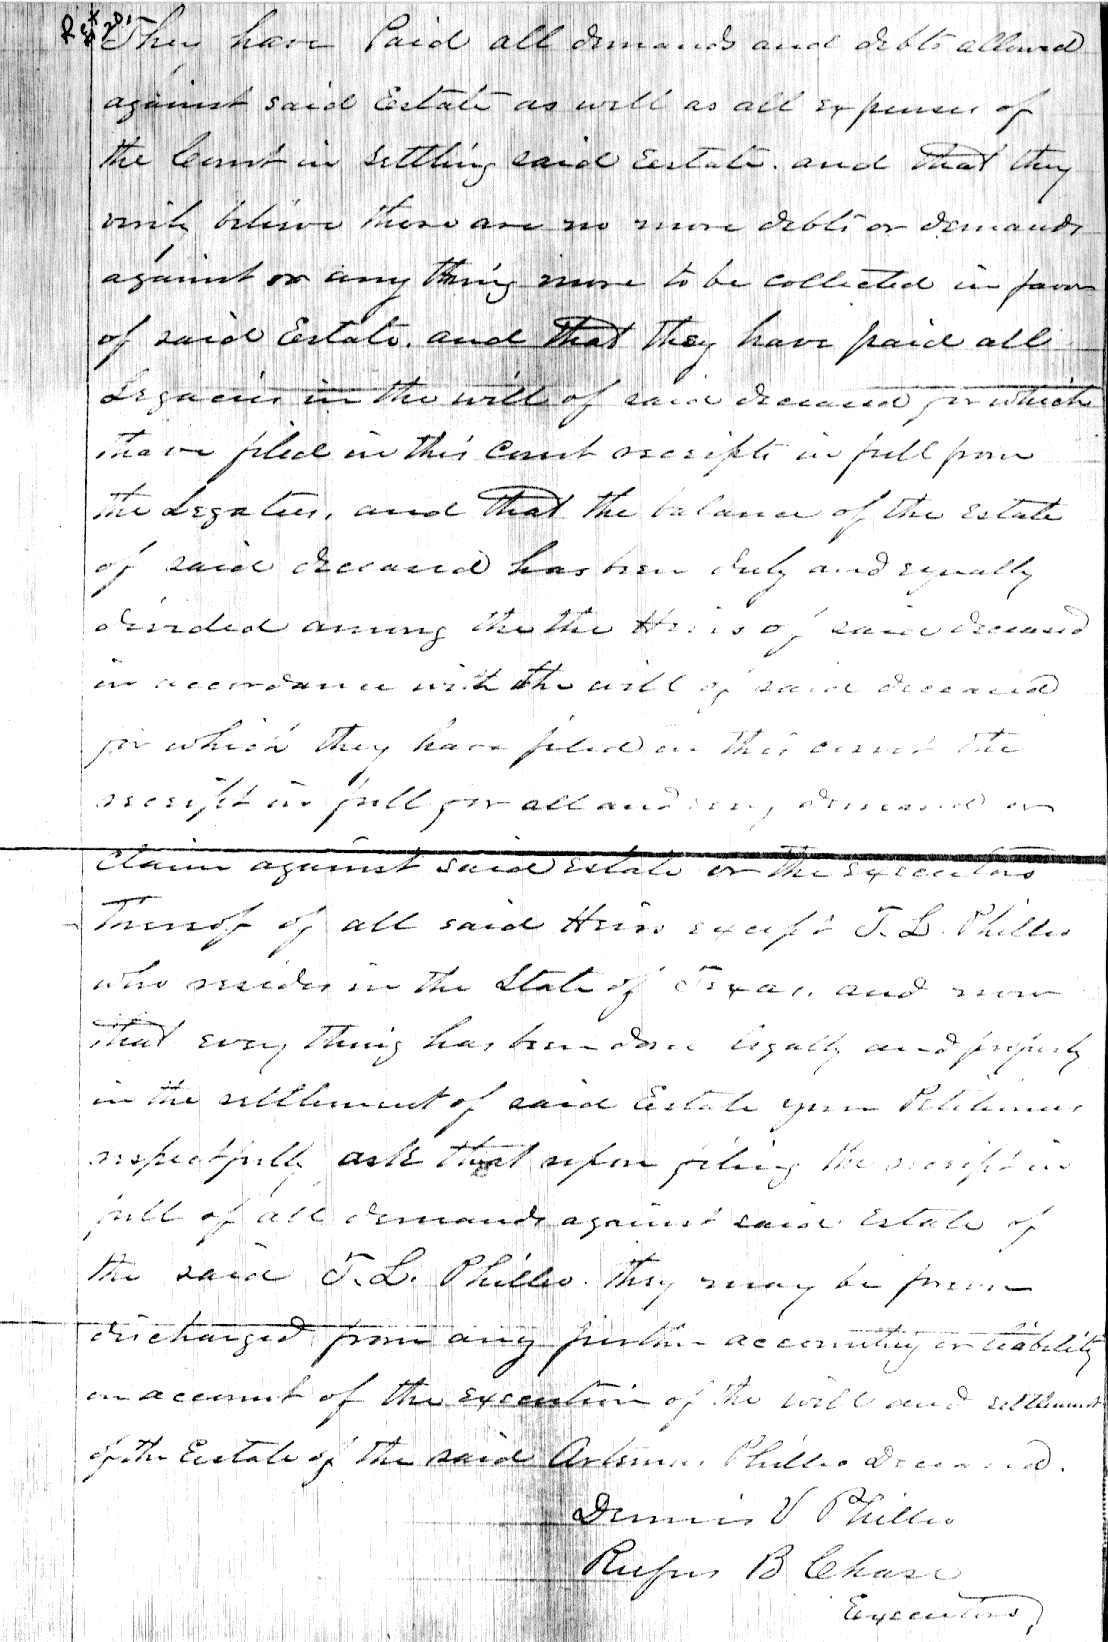 They have Paid all demands and debts allowed
against said Estate as well as all expenses of
the Court in settling said Estate. and that they
verily believe there are no more debts or demands
against or any thing more to be collected in favor
of said Estate. and that they have paid all
Legacies in the will of said deceased for which
have filed in this Court receipts in full from
the Legatees, and that the balance of the Estate
of said deceased has been duly and equally
divided among the the Heirs of said deceased
in accordance with the will of said deceased
for which they have filed in this court the
receipt in full for all and any demand or
claim against said Estate or the executors
Thereof of all said Heirs except T. L. Phillio
who resides in the State of Texas, and now
that every thing has been done legally and properly
in the settlement of said Estate your Petitioners
respectfully ask that upon filing the receipt in
full of all demands against said Estate of
the said T. L. Phillio. they may be forever
discharged from any further accounting or liability
on account of the execution of the will and settlement
of the Estate of the said Artemus Phillio Deceased.
Dennis V Phillio
Rufus B Chase
Executors